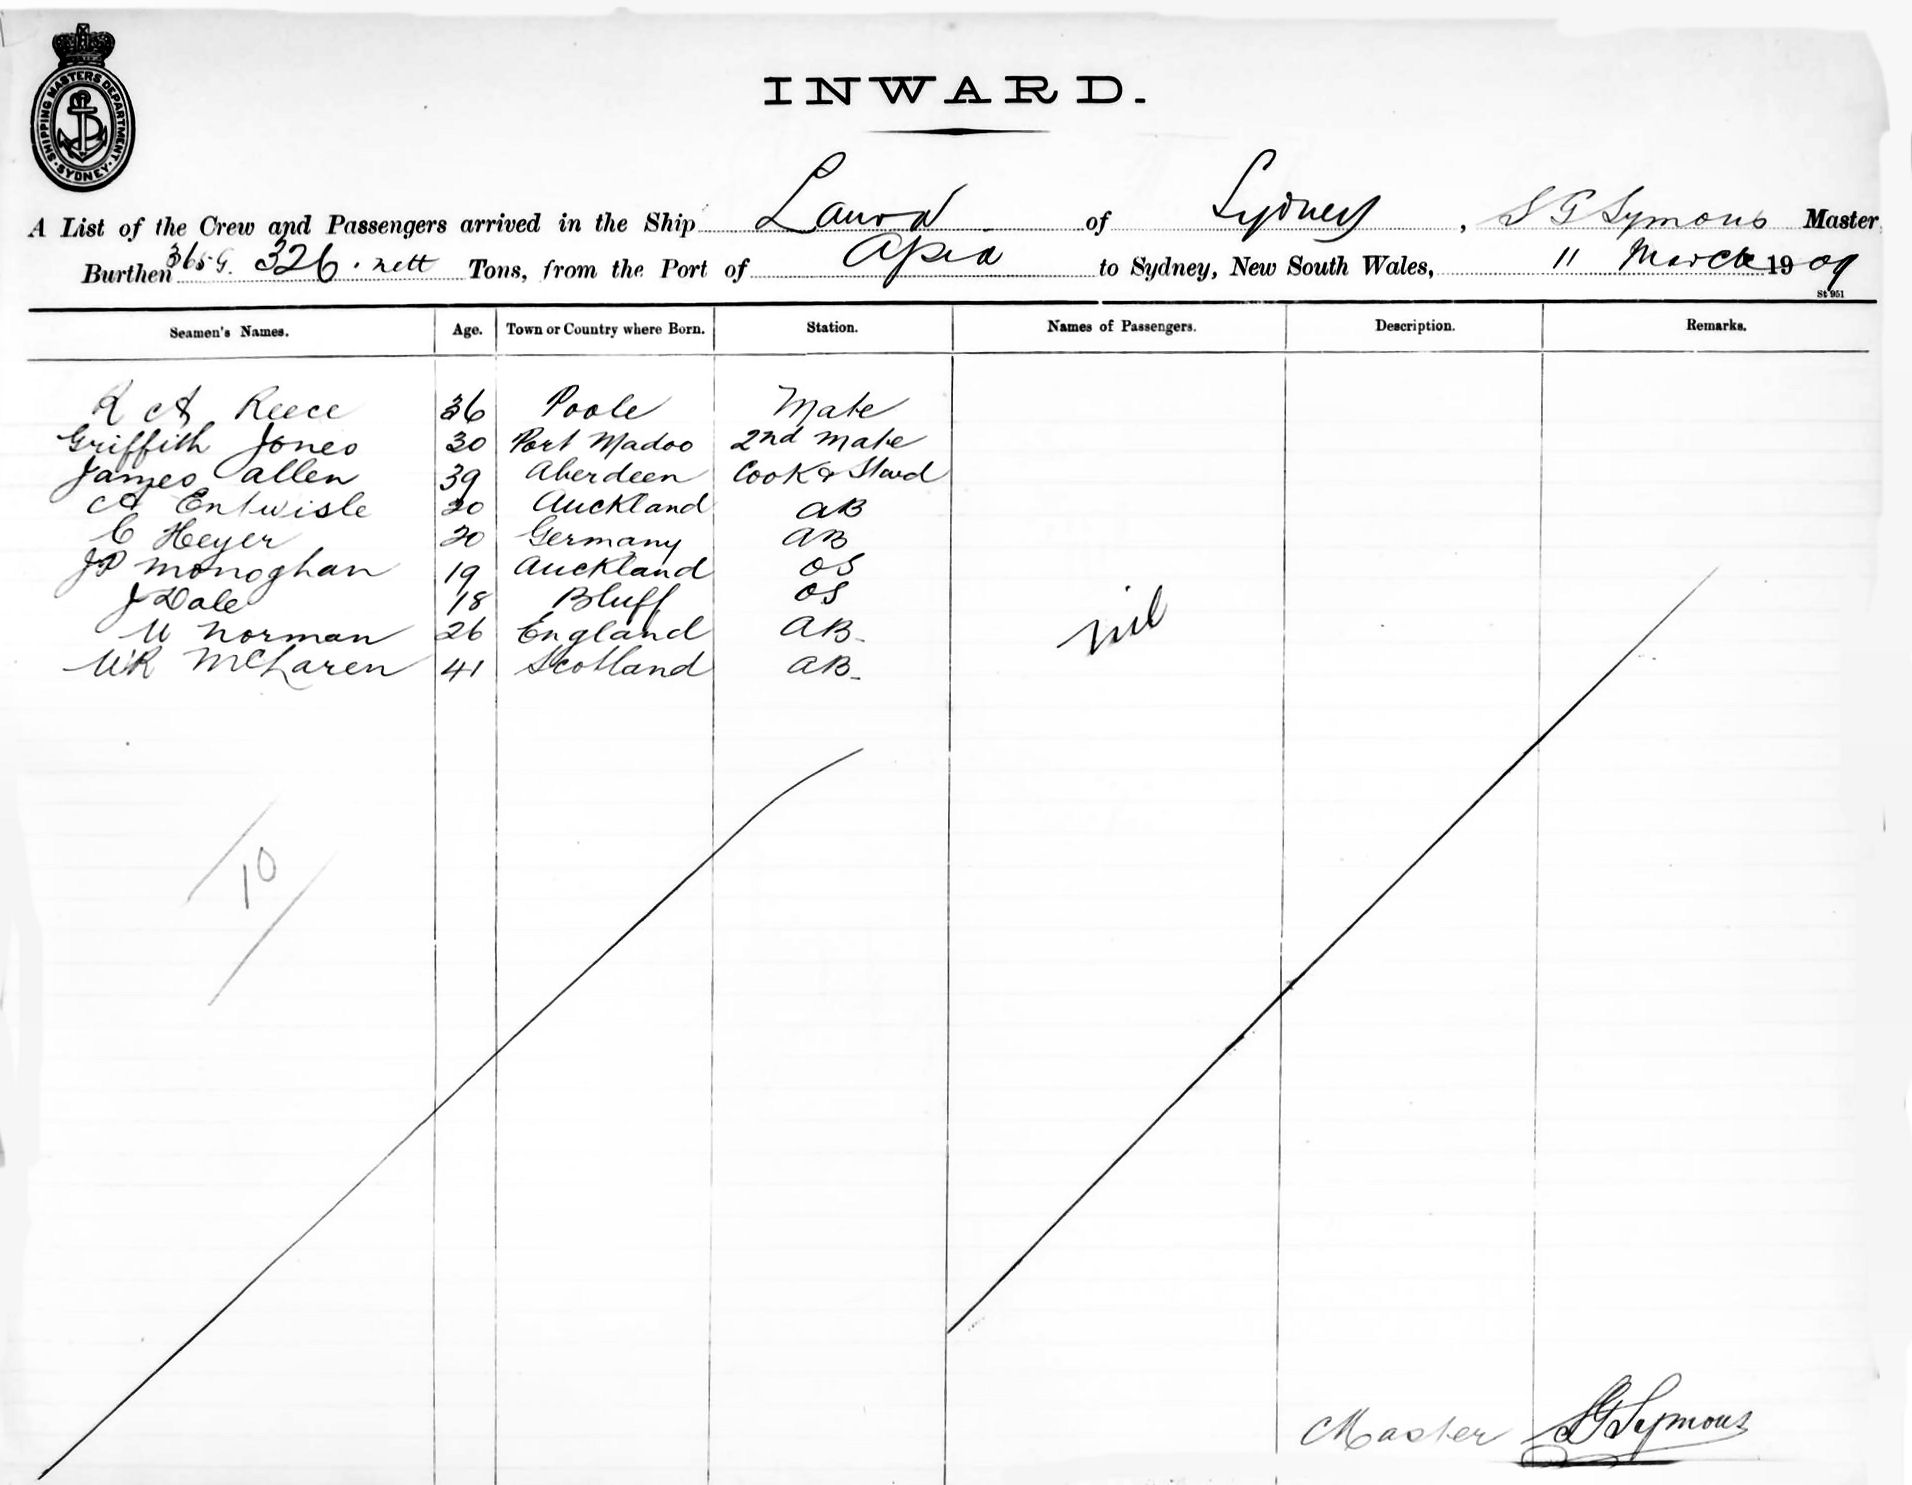 SHIPPING MASTERS DEPARTMENT
SYDNEY
INWARD.
A List of the Crew and Passengers arrived in the Ship Laura of Sydney, S G Symons Master
Burthen 365 G. 326. nett Tons, from the Port of Apia to Sydney, New South Wales, 11 March 1909
St 951
Seamen's Names. Age. Town or Country where Born. Station. Names of Passengers. Description. Remarks.
R A Reece 36 Poole Mate
Griffith Jones 30 Port Madoc 2nd Mate
James Allen 39 Aberdeen Cook & Stwd
A Entwisle 20 Auckland AB
C Heyer 20 Germany AB
JP Monoghan 19 Auckland OS
J Dale 18 Bluff OS
W Norman 26 England AB
nil
WR McLaren 41 Scotland AB
10
Master SG Symons